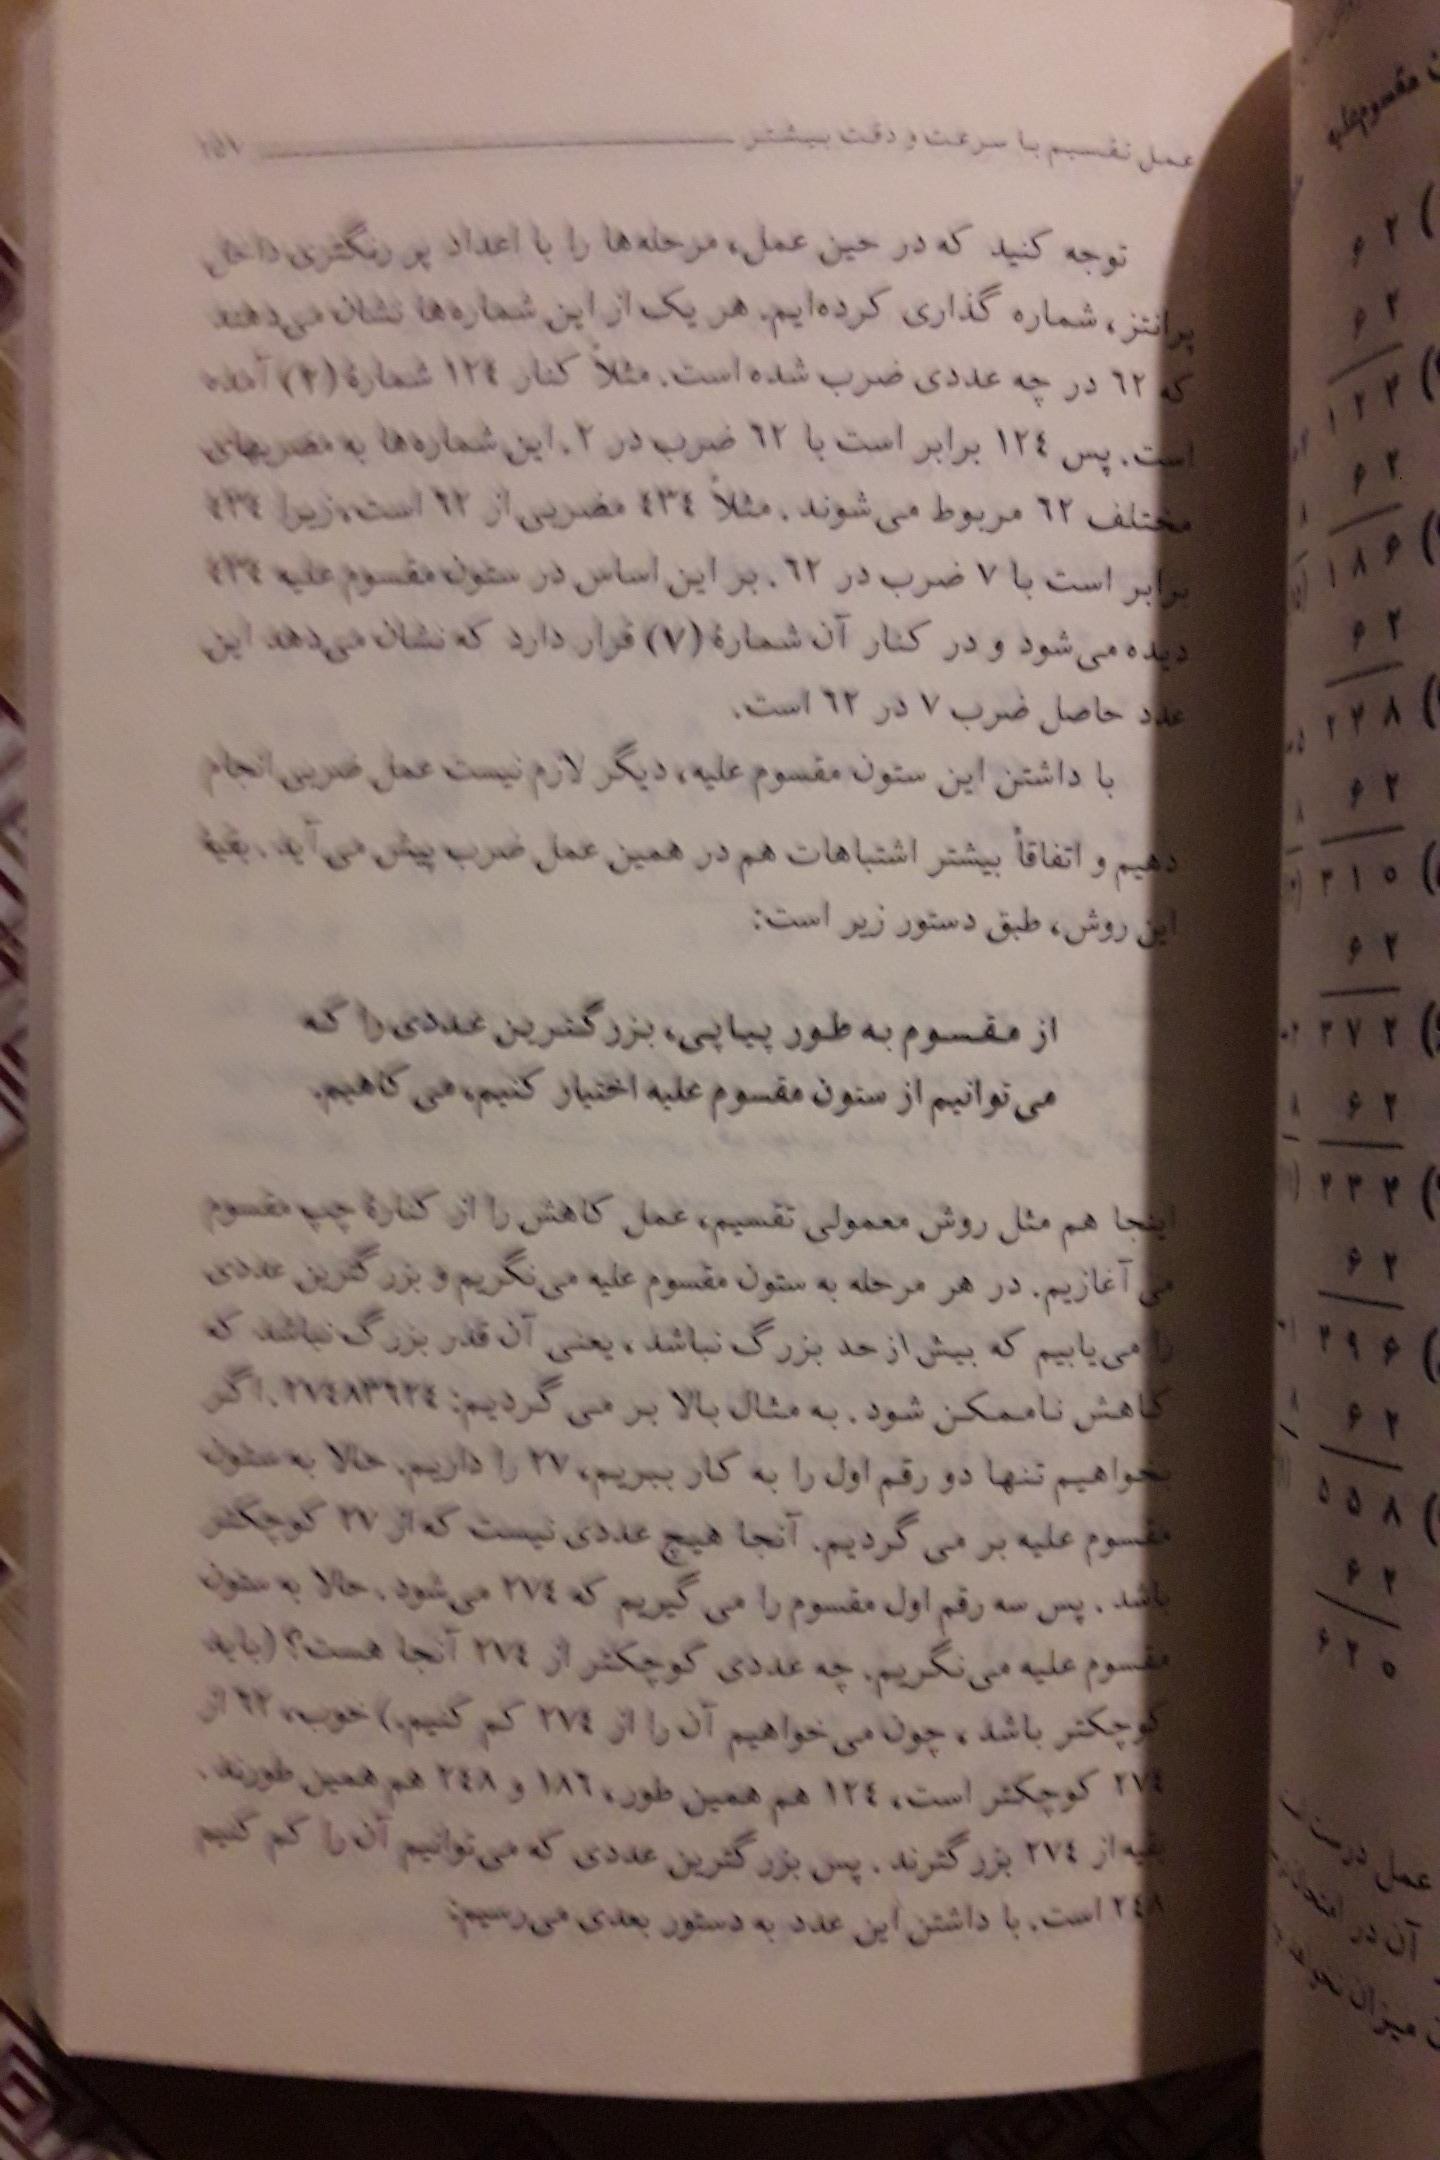 عمل تقسیم با سرعت و دقت بیشتر ۲۵۱
توجه کنید که در حین عمل، مرحله‌ها را با اعداد پر رنگتری داخل
پرانتز، شماره گذاری کرده‌ایم. هر یک از این شماره‌ها نشان می‌دهند
که ٦٢ در چه عددی ضرب شده است. مثلاً کنار ١٢٤ شمارهٔ (٢) آمده
است. پس ١٢٤ برابر است با ٦٢ ضرب در ٢. این شماره‌ها به مضربهای
مختلف ٦٢ مربوط می‌شوند. مثلاً ٤٣٤ مضربی از ٦٢ است، زیرا ٤٣٤
برابر است با ٧ ضرب در ٦٢. بر این اساس در ستون مقسوم علیه ٤٣٤
دیده می‌شود و در کنار آن شمارهٔ (٧) قرار دارد که نشان می‌دهد این
عدد حاصل ضرب ٧ در ٦٢ است.
با داشتن این ستون مقسوم علیه، دیگر لازم نیست عمل ضربی انجام
دهیم و اتفاقاً بیشتر اشتباهات هم در همین عمل ضرب پیش می‌آید. بقیهٔ
این روش، طبق دستور زیر است:
از مقسوم به طور پیاپی، بزرگترین عددی را که
می‌توانیم از ستون مقسوم علیه اختیار کنیم، می‌کاهیم.
اینجا هم مثل روش معمولی تقسیم، عمل کاهش را از کنارهٔ چپ مقسوم
می آغازیم. در هر مرحله به ستون مقسوم علیه می‌نگریم و بزرگترین عددی
را می‌یابیم که بیش از حد بزرگ نباشد، یعنی آن قدر بزرگ نباشد که
کاهش ناممکن شود. به مثال بالا بر می گردیم: ٢٧٤٨٣٦٢٤. اگر
بخواهیم تنها دو رقم اول را به کار ببریم، ٢٧ را داریم. حالا به ستون
مقسوم علیه بر می گردیم. آنجا هیچ عددی نیست که از ٢٧ کوچکتر
باشد. پس سه رقم اول مقسوم را می گیریم که ٢٧٤ می‌شود. حالا به ستون
مقسوم علیه می‌نگریم. چه عددی کوچکتر از ٢٧٤ آنجا هست؟ (باید
کوچکتر باشد، چون می‌خواهیم آن را از ٢٧٤ کم کنیم.) خوب، ٦٢ از
٢٧٤ کوچکتر است، ١٢٤ هم همین طور، ١٨٦ و ٢٤٨ هم همین طورند.
بقیه از ٢٧٤ بزرگترند. پس بزرگترین عددی که می‌توانیم آن را کم کنیم
٢٤٨ است. با داشتن این عدد به دستور بعدی می‌رسیم:
مقسوم علیه
۶۲
۶۲
۱۲۴
۶۲
۱۸۶
۶۲
۲۴۸
۶۲
۳۱۰
۶۲
۳۷۲
۶۲
۴۳۴
۶۲
۴۹۶
۶۲
۵۵۸
۶۲
۶۲۰
عمل درست
آن در
میزان